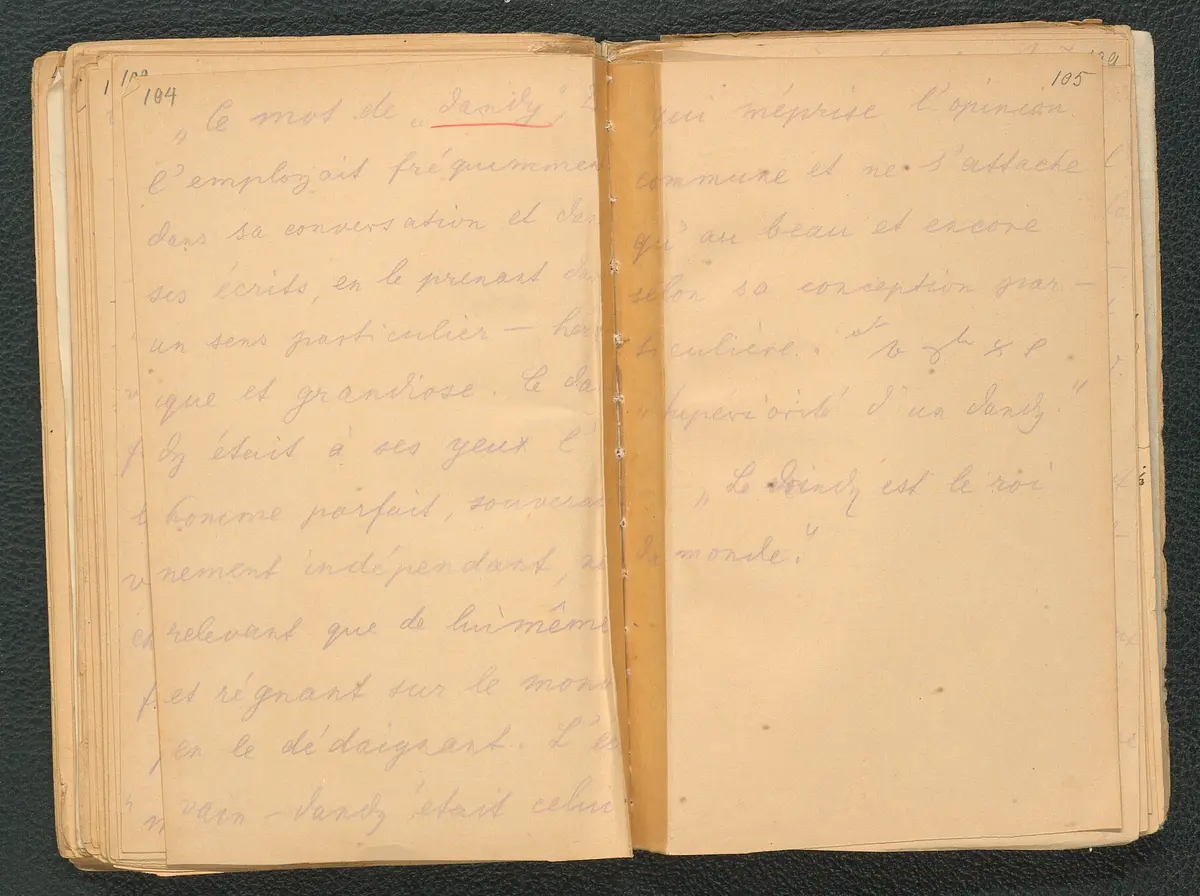 104
„Ce mot de „dandy",
l'employait fréquemmen
dans sa conversation et dan
ses écrits, en le prenant da
un sens particulier — héro
que et grandiose. Le da
dy était à ses yeux l'
homme parfait, souverai
nement indépendant, ne
relevant que de lui même
et régnant sur le mond
en le dédaignant. L'écri
vain - dandy était celui
105
qui méprise l'opinion
commune et ne s'attache
qu'au beau et encore
selon sa conception par-
ticulière.
„supériorité d'un dandy."
„Le dandy est le roi
du monde."